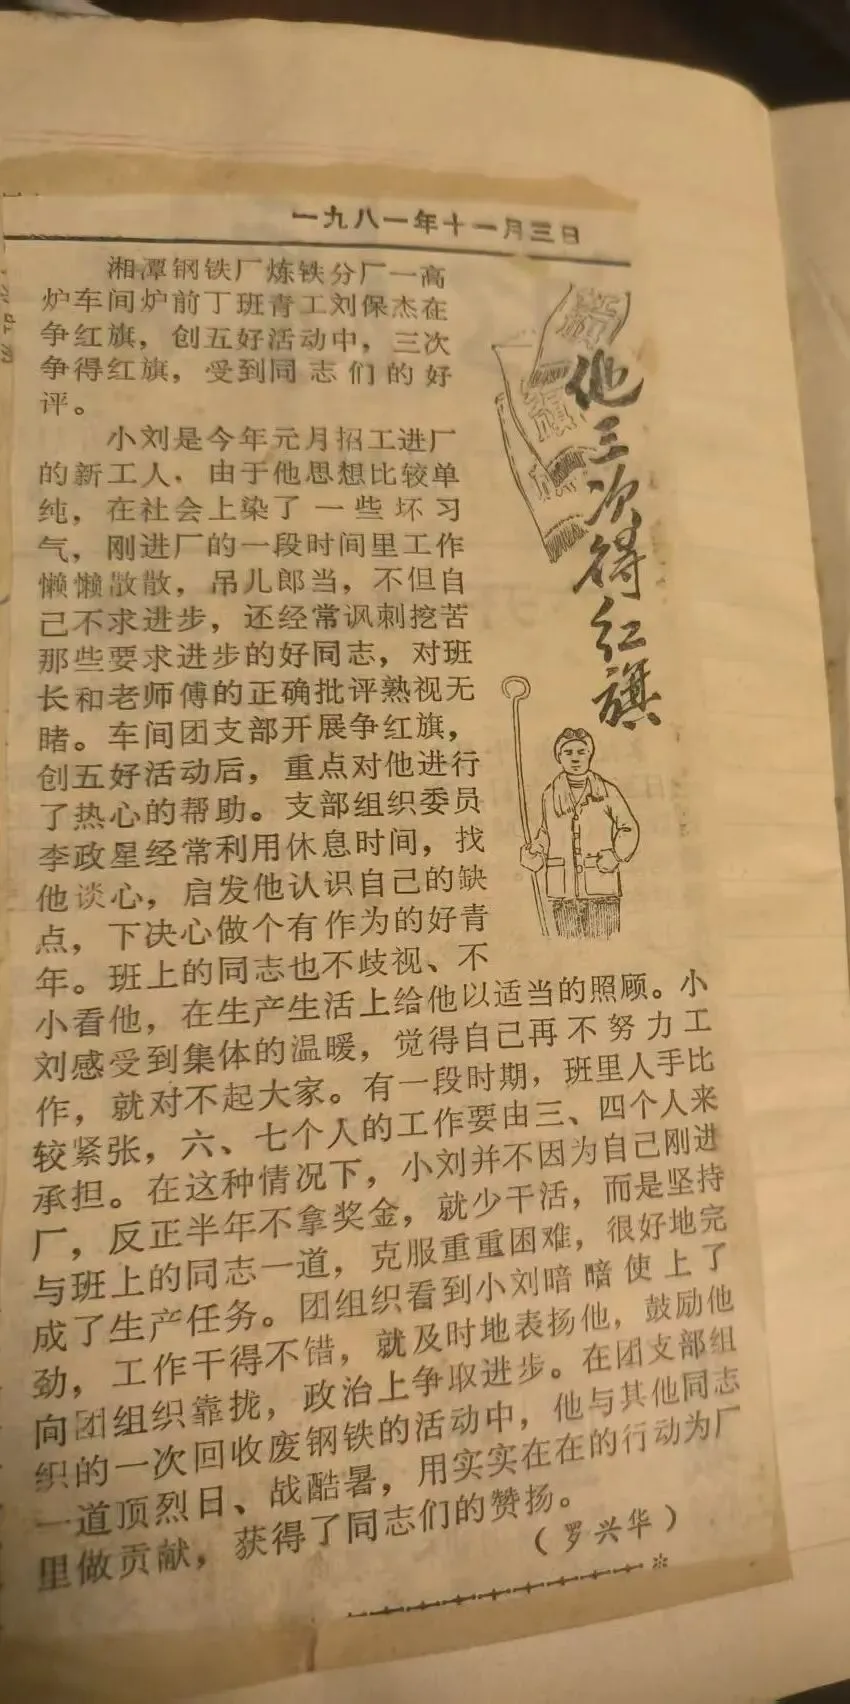 一九八一年十一月三日
他三次得红旗
湘潭钢铁厂炼铁分厂一高
炉车间炉前丁班青工刘保杰在
争红旗，创五好活动中，三次
争得红旗，受到同志们的好
评。
小刘是今年元月招工进厂
的新工人，由于他思想比较单
纯，在社会上染了一些坏习
气，刚进厂的一段时间里工作
懒懒散散，吊儿郎当，不但自
己不求进步，还经常讽刺挖苦
那些要求进步的好同志，对班
长和老师傅的正确批评熟视无
睹。车间团支部开展争红旗，
创五好活动后，重点对他进行
了热心的帮助。支部组织委员
李政星经常利用休息时间，找
他谈心，启发他认识自己的缺
点，下决心做个有作为的好青
年。班上的同志也不歧视、不
小看他，在生产生活上给他以适当的照顾。小
刘感受到集体的温暖，觉得自己再不努力工
作，就对不起大家。有一段时期，班里人手比
较紧张，六、七个人的工作要由三、四个人来
承担。在这种情况下，小刘并不因为自己刚进
厂，反正半年不拿奖金，就少干活，而是坚持
与班上的同志一道，克服重重困难，很好地完
成了生产任务。团组织看到小刘暗暗使上了
劲，工作干得不错，就及时地表扬他，鼓励他
向团组织靠拢，政治上争取进步。在团支部组
织的一次回收废钢铁的活动中，他与其他同志
一道顶烈日、战酷暑，用实实在在的行动为厂
里做贡献，获得了同志们的赞扬。
（罗兴华）